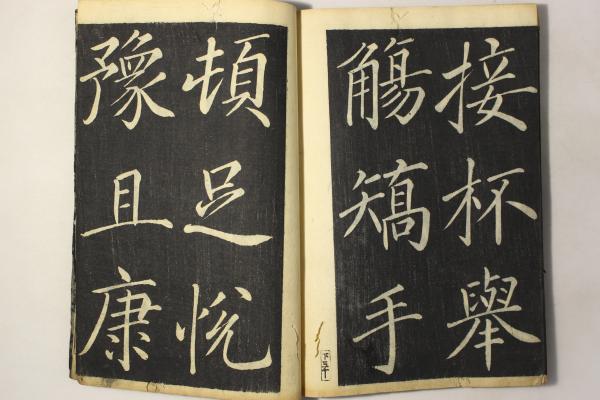 接杯舉
觴矯手
頓足悅
豫且康
下三十